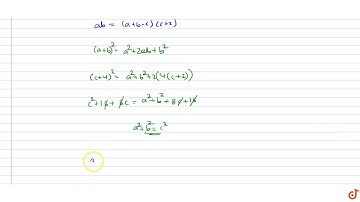 ab = (a+b-c)(c+2)
(a+b)² = a²+2ab+b²
(c+4)² = a²+b²+2(4(c+2))
c²+16+8c = a²+b²+8c+16
a²+b² = c²